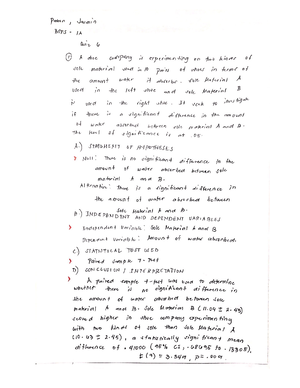 BIPS - 1A
Quiz 6
① A shoe company is experimenting on two kinds of
sole material used in 10 pairs of shoes in terms of
the amount water it absorbs. Sole Material A
used in the left shoe and sole Material B
is used in the right shoe. It seek to investigate
if there is a significant difference in the amount
of water absorbed between sole material A and B.
The level of significance is at .05.
A) STATEMENT OF HYPOTHESES
Null: There is no significant difference in the
amount of water absorbed between sole
material A and B.
Alternative: There is a significant difference in
the amount of water absorbed between
sole Material A and B.
B) INDEPENDENT AND DEPENDENT VARIABLES
Independent Variable: Sole Material A and B
Dependent Variable: Amount of water absorbed
C) STATISTICAL TEST USED
Paired sample T-test
D) CONCLUSION & INTERPRETATION
A paired sample t-test was used to determine
whether there is no significant difference in
the amount of water absorbed between sole
material A and B. Sole Material B (11.04 ± 2.49)
scored higher in shoe company experimenting
with two kinds of sole than sole Material A
a statistically significant mean
difference of